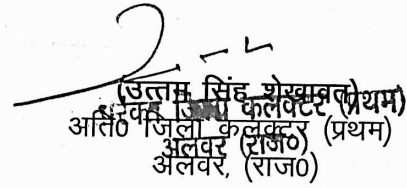 (उत्तम सिंह शेखावत)
कलेक्टर (प्रथम)
अति० जिला कलेक्टर (प्रथम)
अलवर (राज०)
अलवर, (राज०)